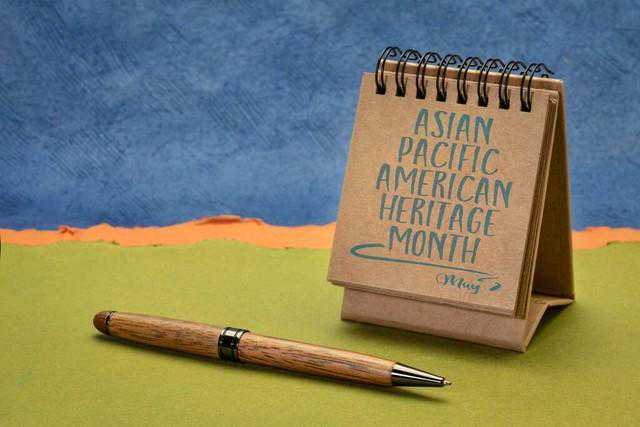 ASIAN
PACIFIC
AMERICAN
HERITAGE
MONTH
May